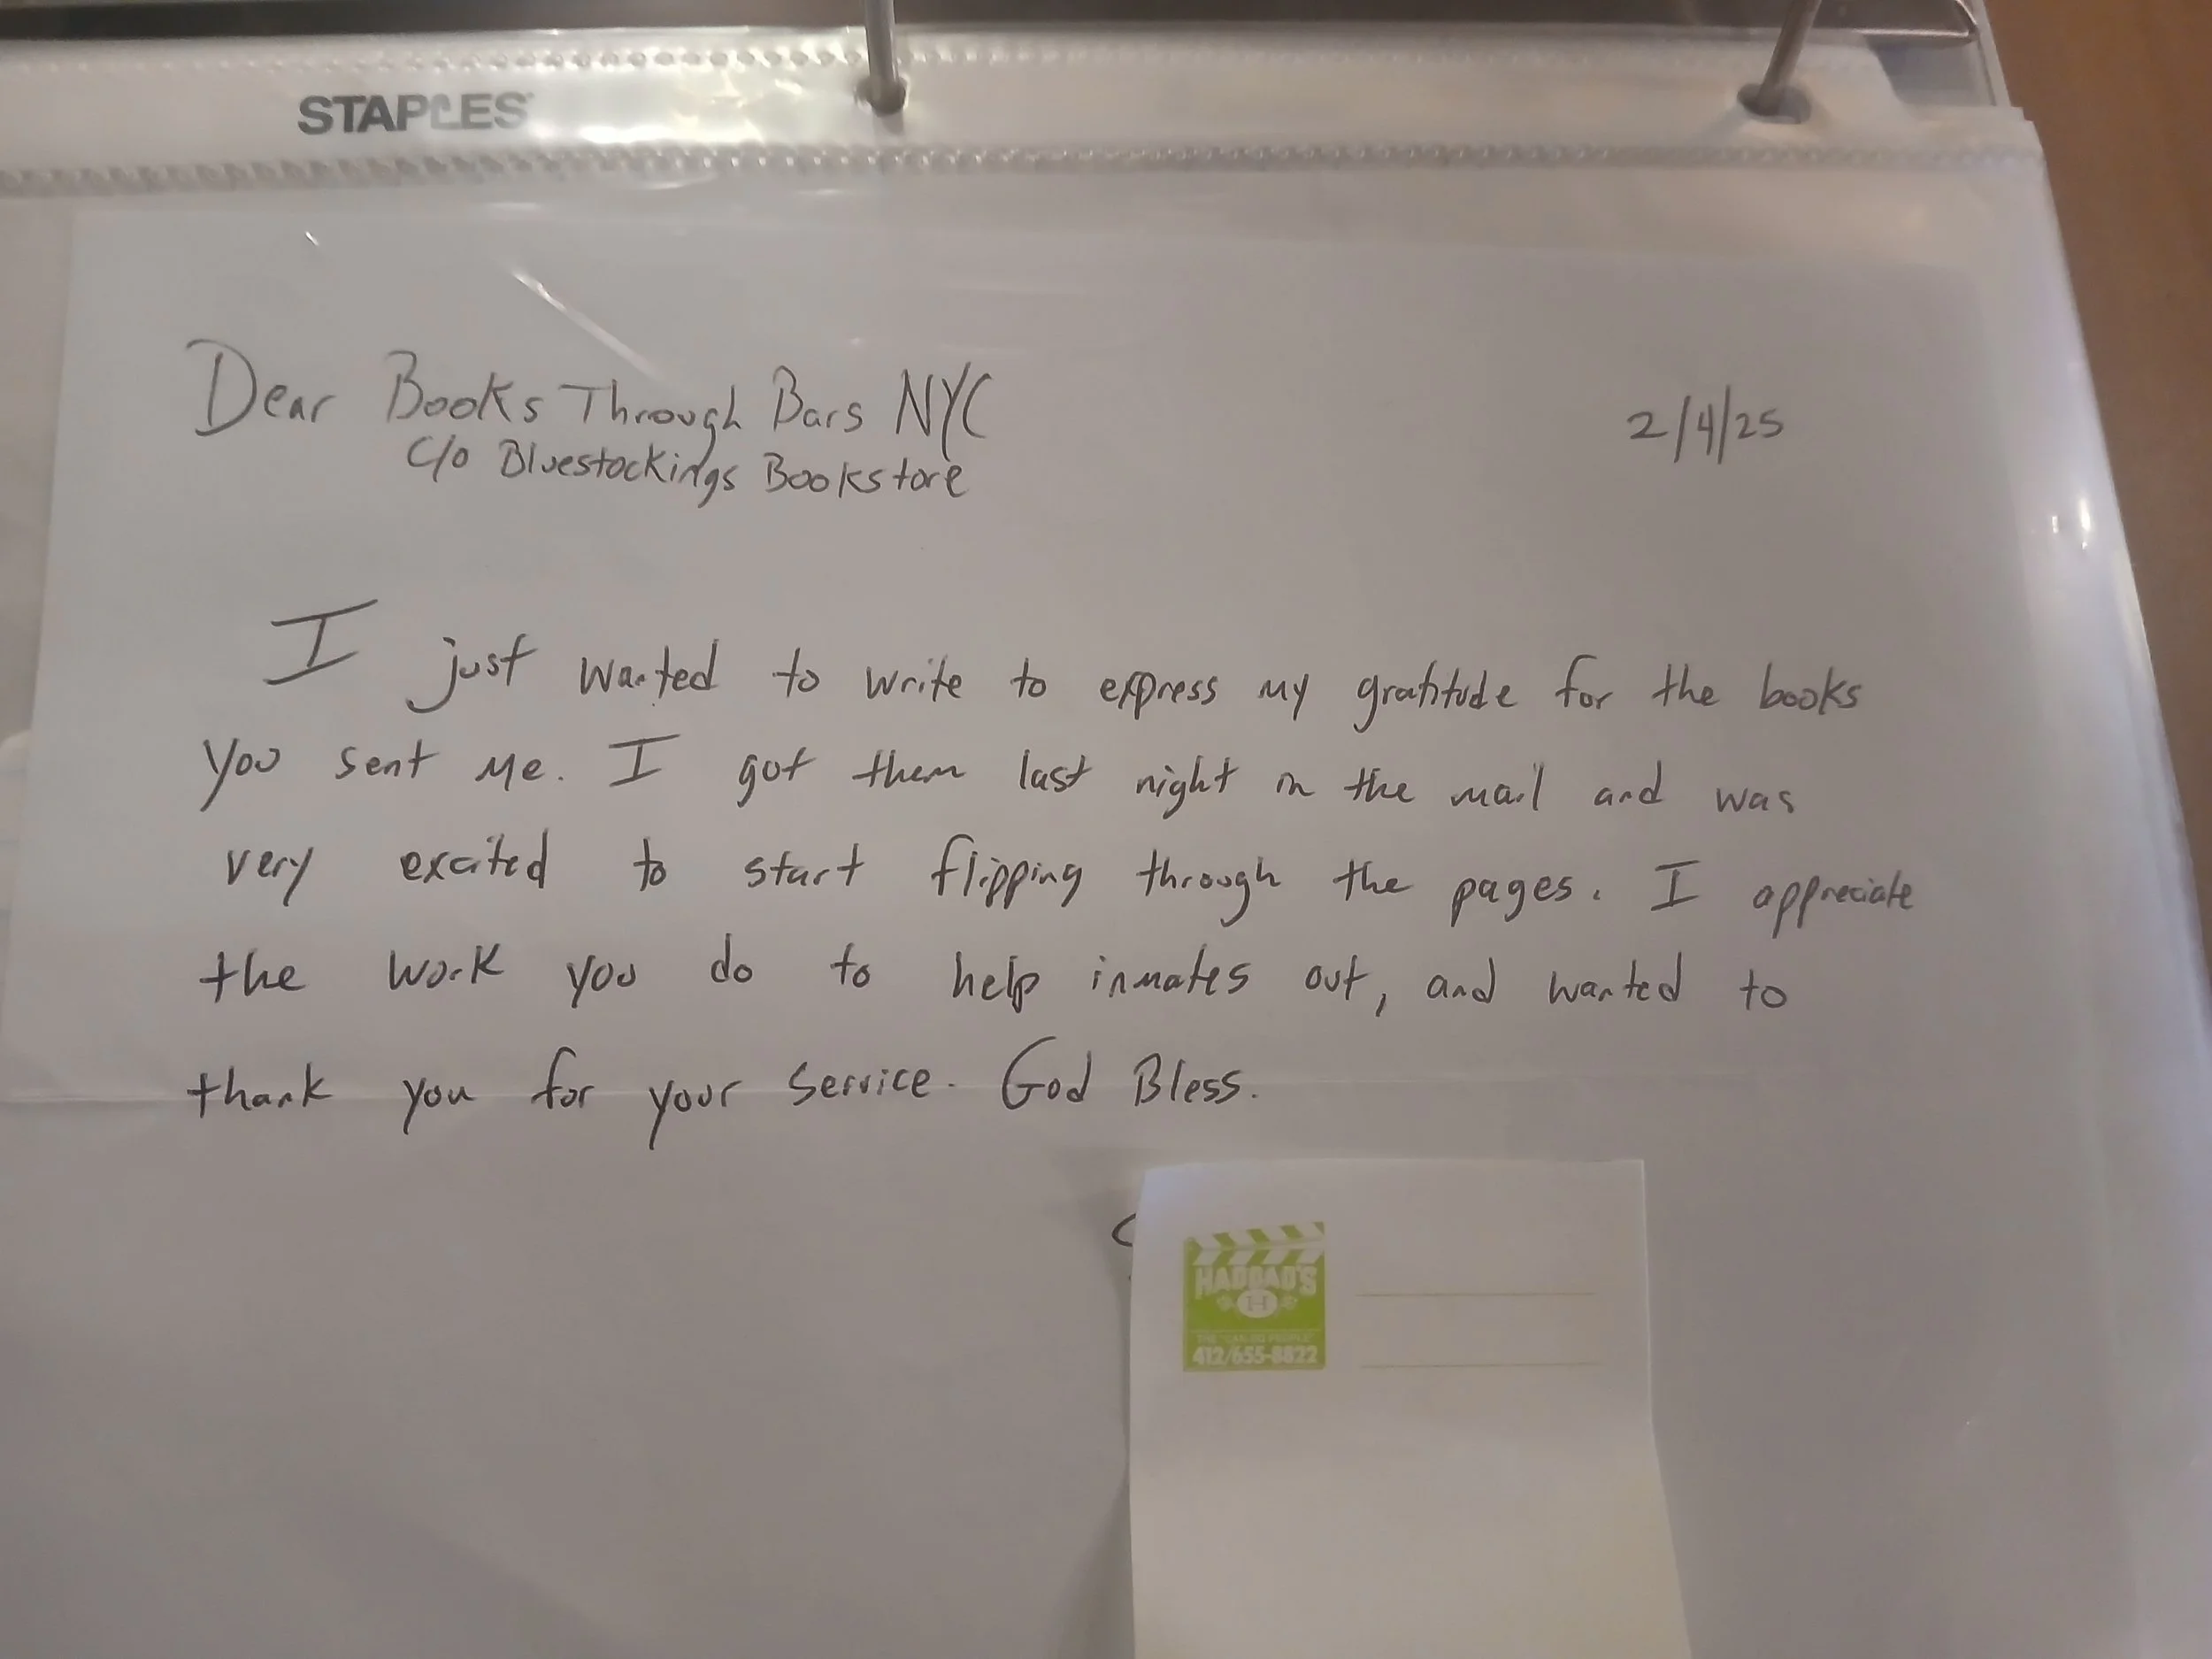 STAPLES
Dear Books Through Bars NYC
2/4/25
c/o Bluestockings Bookstore
I just wanted to write to express my gratitude for the books
you sent me. I got them last night in the mail and was
very excited to start flipping through the pages. I appreciate
the work you do to help inmates out, and wanted to
thank you for your service. God Bless.
HADDAD'S
H
THE "CAN-DO PEOPLE"
412/655-8822